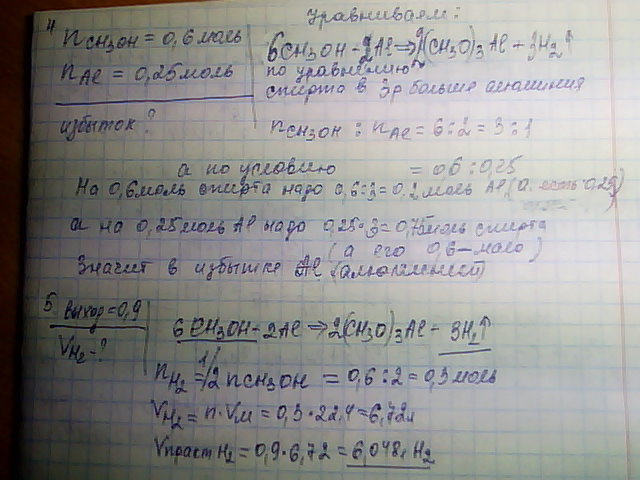 Уравниваем:
4 nCH3OH = 0,6 моль
6CH3OH + 2Al => 2(CH3O)3Al + 3H2↑
nAl = 0,25 моль
по уравнению
спирта в 3р больше алюминия
избыток?
nCH3OH : nAl = 6:2 = 3:1
а по условию = 0,6 : 0,25
На 0,6 моль спирта надо 0,6:3=0,2 моль Al (а есть 0,25)
а на 0,25 моль Al надо 0,25·3=0,75 моль спирта
(а его 0,6 - мало)
Значит в избытке Al (алюминий)
5 выход=0,9
VH2 - ?
6CH3OH - 2Al => 2(CH3O)3Al - 3H2↑
nH2 = 1/2 nCH3OH = 0,6:2 = 0,3 моль
VH2 = n·Vм = 0,3·22,4 = 6,72л
Vпракт H2 = 0,9·6,72 = 6,048л H2